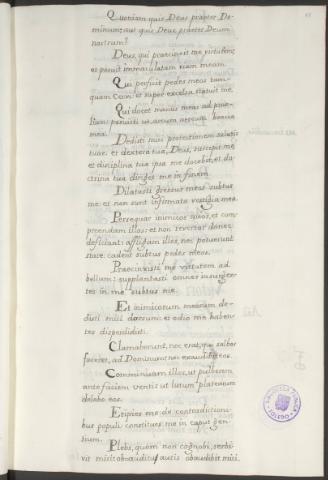 Quoniam quis Deus praeter Do-
minum: aut quis Deus praeter Deum
nostrum?
Deus, qui praecinxit me virtute:
et posuit immaculatam viam meam.
Qui perfecit pedes meos tam-
quam cervorum: et super excelsa statuit me.
Qui docet manus meas ad prae-
lium: posuisti ut arcum aereum brachia
mea.
Dedisti mihi protectionem salutis
tuae: et dextera tua, Deus, suscepit me
et disciplina tua ipsa me docebit, et do-
ctrina tua diriges me in finem.
Dilatasti gressus meos subtus
me: et non sunt infirmata vestigia mea.
Persequar inimicos meos, et com-
preendam illos: et non revertar donec
deficiant: affligam illos, nec potuerunt
stare: cadent subtus pedes meos.
Praecinxisti me virtutem ad
bellum: supplantasti omnes insurgen-
tes in me subtus me.
Et inimicorum meorum de-
disti mihi dorsum: et odio me haben-
tes disperdidisti.
Clamaberunt, nec erat, qui salbos
faceret, ad Dominum: nec exaudibit eos.
Comminuam illos, ut pulberem
ante faciem venti: et ut lutum platearum
delebo eos.
Eripies me de contradictioni-
bus populi: constitues me in caput gen-
tium.
Plebs, quam non cognobi, serbi-
vit mihi: ob auditu auris obaudibit mihi.